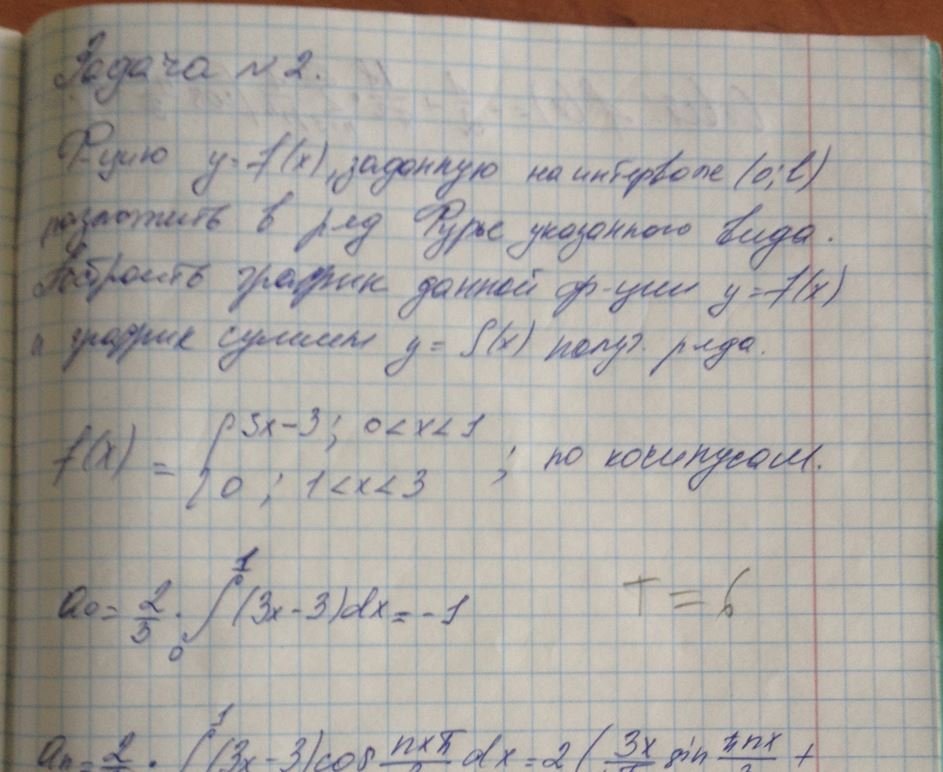 Задача №2.
Ф-цию y=f(x), заданную на интервале (0;l)
разложить в ряд Фурье указанного вида.
Построить график данной ф-ции y=f(x)
и график суммы y=S(x) получ. ряда.
f(x) = { 3x-3; 0<x<1
0; 1<x<3 ; по косинусам.
a₀ = 2/3 · ∫₀¹ (3x-3)dx = -1 T=6
aₙ = 2/3 · ∫₀¹ (3x-3)cos nxπ/3 dx = 2( 3x/πn sin πnx/3 +